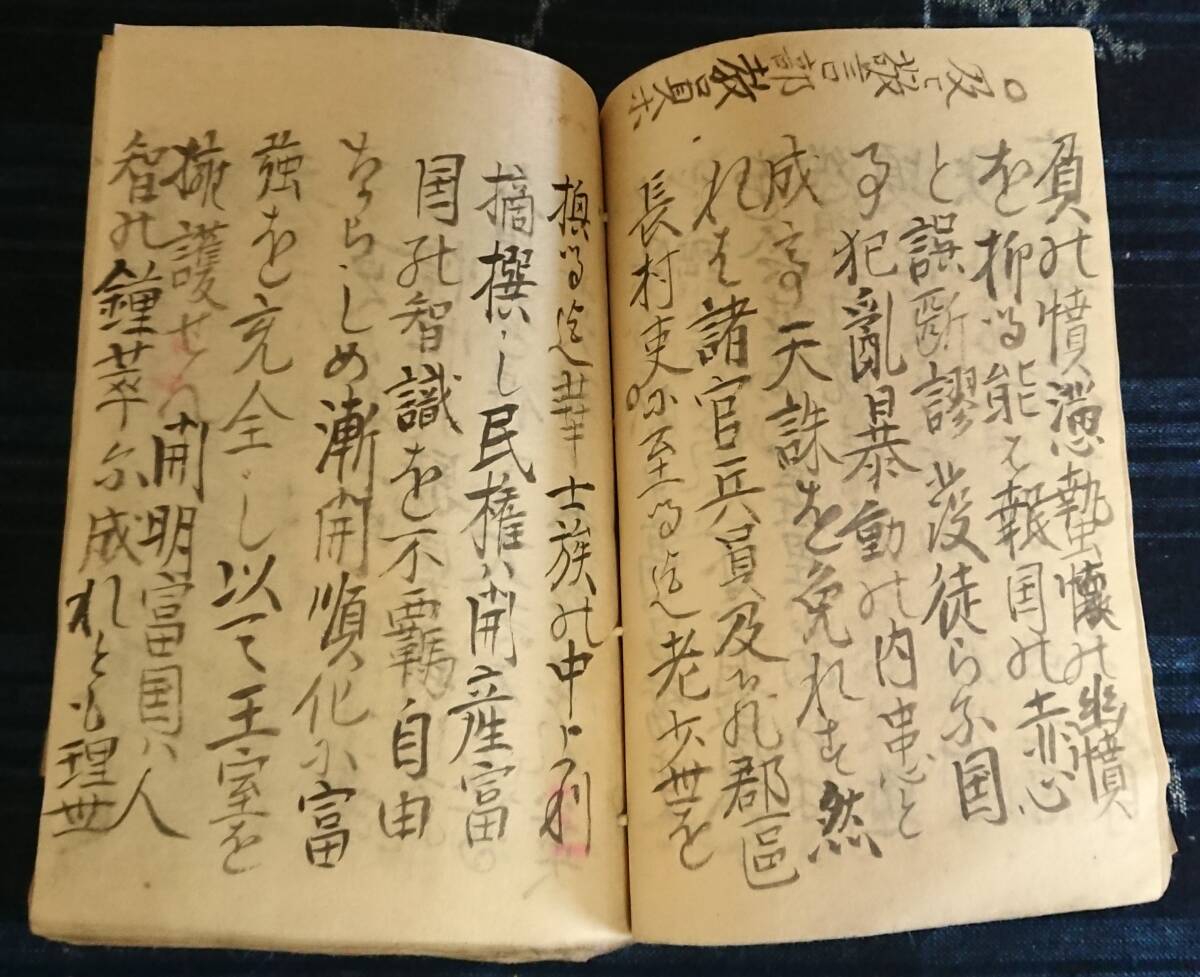 ○及警部教員ホ
負の憤懣蟄懐の幽憤
を抑る能はす報国の赤心
と誤断謬設徒らに国
事犯乱暴動の内患と
成て天誅を免れす然
れは諸官兵員及ひ九郡区
長村吏に至る迄老少無を
損る迄華士族の中より
摘撰し民権ハ開産富
国の智識を不羈自由
ならしめ漸開順化に富
強を充全し以て王室を
擁護せん開明富国ハ人
智の鍾萃に成れとも理世